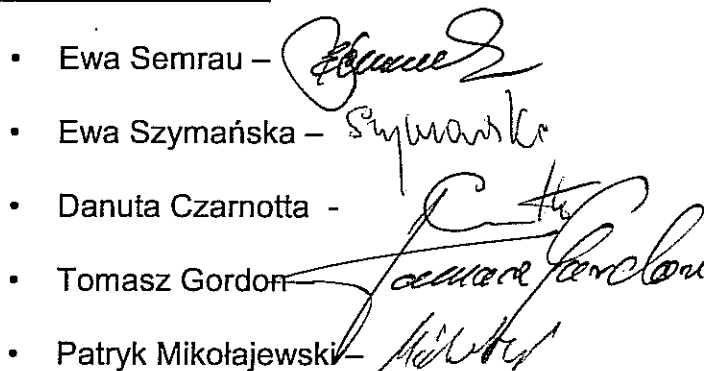 • Ewa Semrau –
• Ewa Szymańska – Szymańska
• Danuta Czarnotta -
• Tomasz Gordon – Tomasz Gordon
• Patryk Mikołajewski –